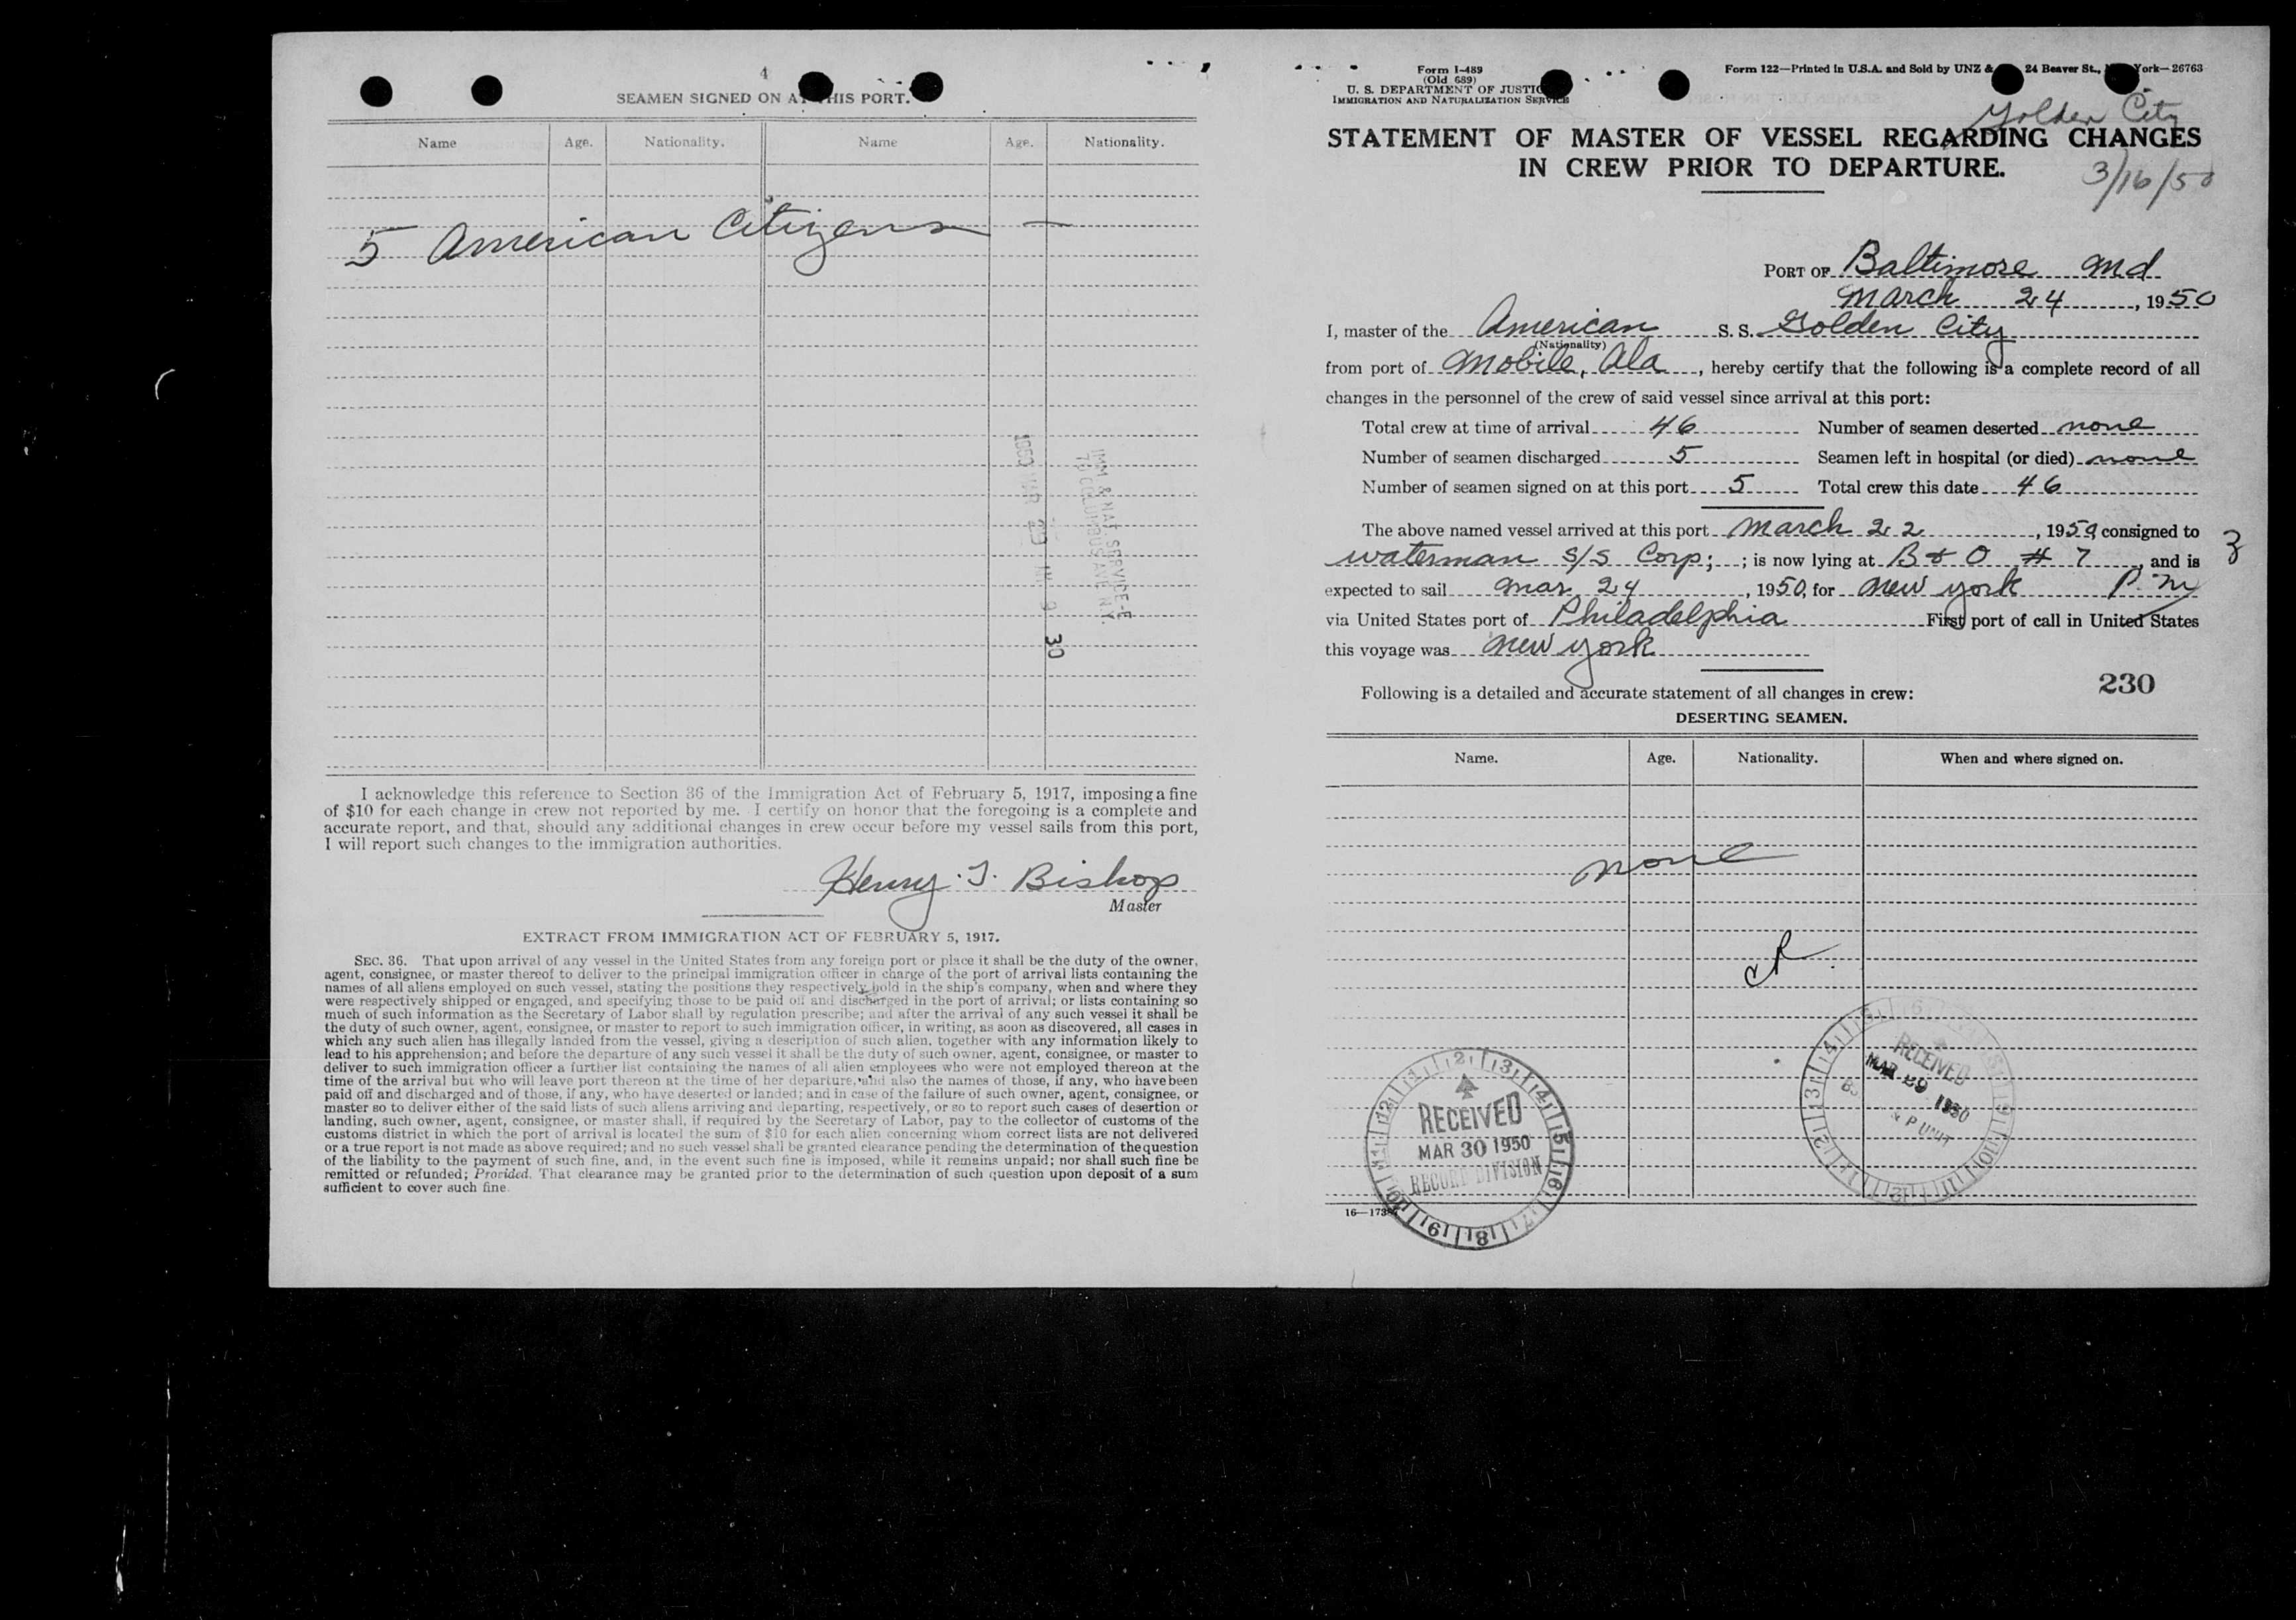 4
SEAMEN SIGNED ON AT THIS PORT.
Name Age. Nationality. Name Age. Nationality.
5 American Citizens —
IMM & NAT SERVICE-E
70 COLUMBUS AVE N.Y.
1950 MAR 29 9 30
I acknowledge this reference to Section 36 of the Immigration Act of February 5, 1917, imposing a fine
of $10 for each change in crew not reported by me. I certify on honor that the foregoing is a complete and
accurate report, and that, should any additional changes in crew occur before my vessel sails from this port,
I will report such changes to the immigration authorities.
Henry T. Bishop
Master
EXTRACT FROM IMMIGRATION ACT OF FEBRUARY 5, 1917.
SEC. 36. That upon arrival of any vessel in the United States from any foreign port or place it shall be the duty of the owner,
agent, consignee, or master thereof to deliver to the principal immigration officer in charge of the port of arrival lists containing the
names of all aliens employed on such vessel, stating the positions they respectively hold in the ship's company, when and where they
were respectively shipped or engaged, and specifying those to be paid off and discharged in the port of arrival; or lists containing so
much of such information as the Secretary of Labor shall by regulation prescribe; and after the arrival of any such vessel it shall be
the duty of such owner, agent, consignee, or master to report to such immigration officer, in writing, as soon as discovered, all cases in
which any such alien has illegally landed from the vessel, giving a description of such alien, together with any information likely to
lead to his apprehension; and before the departure of any such vessel it shall be the duty of such owner, agent, consignee, or master to
deliver to such immigration officer a further list containing the names of all alien employees who were not employed thereon at the
time of the arrival but who will leave port thereon at the time of her departure, and also the names of those, if any, who have been
paid off and discharged and of those, if any, who have deserted or landed; and in case of the failure of such owner, agent, consignee, or
master so to deliver either of the said lists of such aliens arriving and departing, respectively, or so to report such cases of desertion or
landing, such owner, agent, consignee, or master shall, if required by the Secretary of Labor, pay to the collector of customs of the
customs district in which the port of arrival is located the sum of $10 for each alien concerning whom correct lists are not delivered
or a true report is not made as above required; and no such vessel shall be granted clearance pending the determination of the question
of the liability to the payment of such fine, and, in the event such fine is imposed, while it remains unpaid; nor shall such fine be
remitted or refunded; Provided. That clearance may be granted prior to the determination of such question upon deposit of a sum
sufficient to cover such fine.
Form I-489
(Old 689)
U. S. DEPARTMENT OF JUSTICE
IMMIGRATION AND NATURALIZATION SERVICE
Form 122—Printed in U.S.A. and Sold by UNZ & 24 Beaver St., York—26763
Golden City
STATEMENT OF MASTER OF VESSEL REGARDING CHANGES
IN CREW PRIOR TO DEPARTURE.
3/16/50
PORT OF Baltimore Md
March 24, 1950
I, master of the American S. S. Golden City
(Nationality)
from port of Mobile, Ala, hereby certify that the following is a complete record of all
changes in the personnel of the crew of said vessel since arrival at this port:
Total crew at time of arrival 46 Number of seamen deserted none
Number of seamen discharged 5 Seamen left in hospital (or died) none
Number of seamen signed on at this port 5 Total crew this date 46
The above named vessel arrived at this port March 22, 1950 consigned to
Waterman S/S Corp; ; is now lying at B & O # 7, and is
3
expected to sail Mar 24, 1950, for New York P.M
via United States port of Philadelphia First port of call in United States
this voyage was New York
230
Following is a detailed and accurate statement of all changes in crew:
DESERTING SEAMEN.
Name. Age. Nationality. When and where signed on.
none
RECEIVED
MAR 30 1950
RECORD DIVISION
RECEIVED
MAR 29 1950
& P UNIT